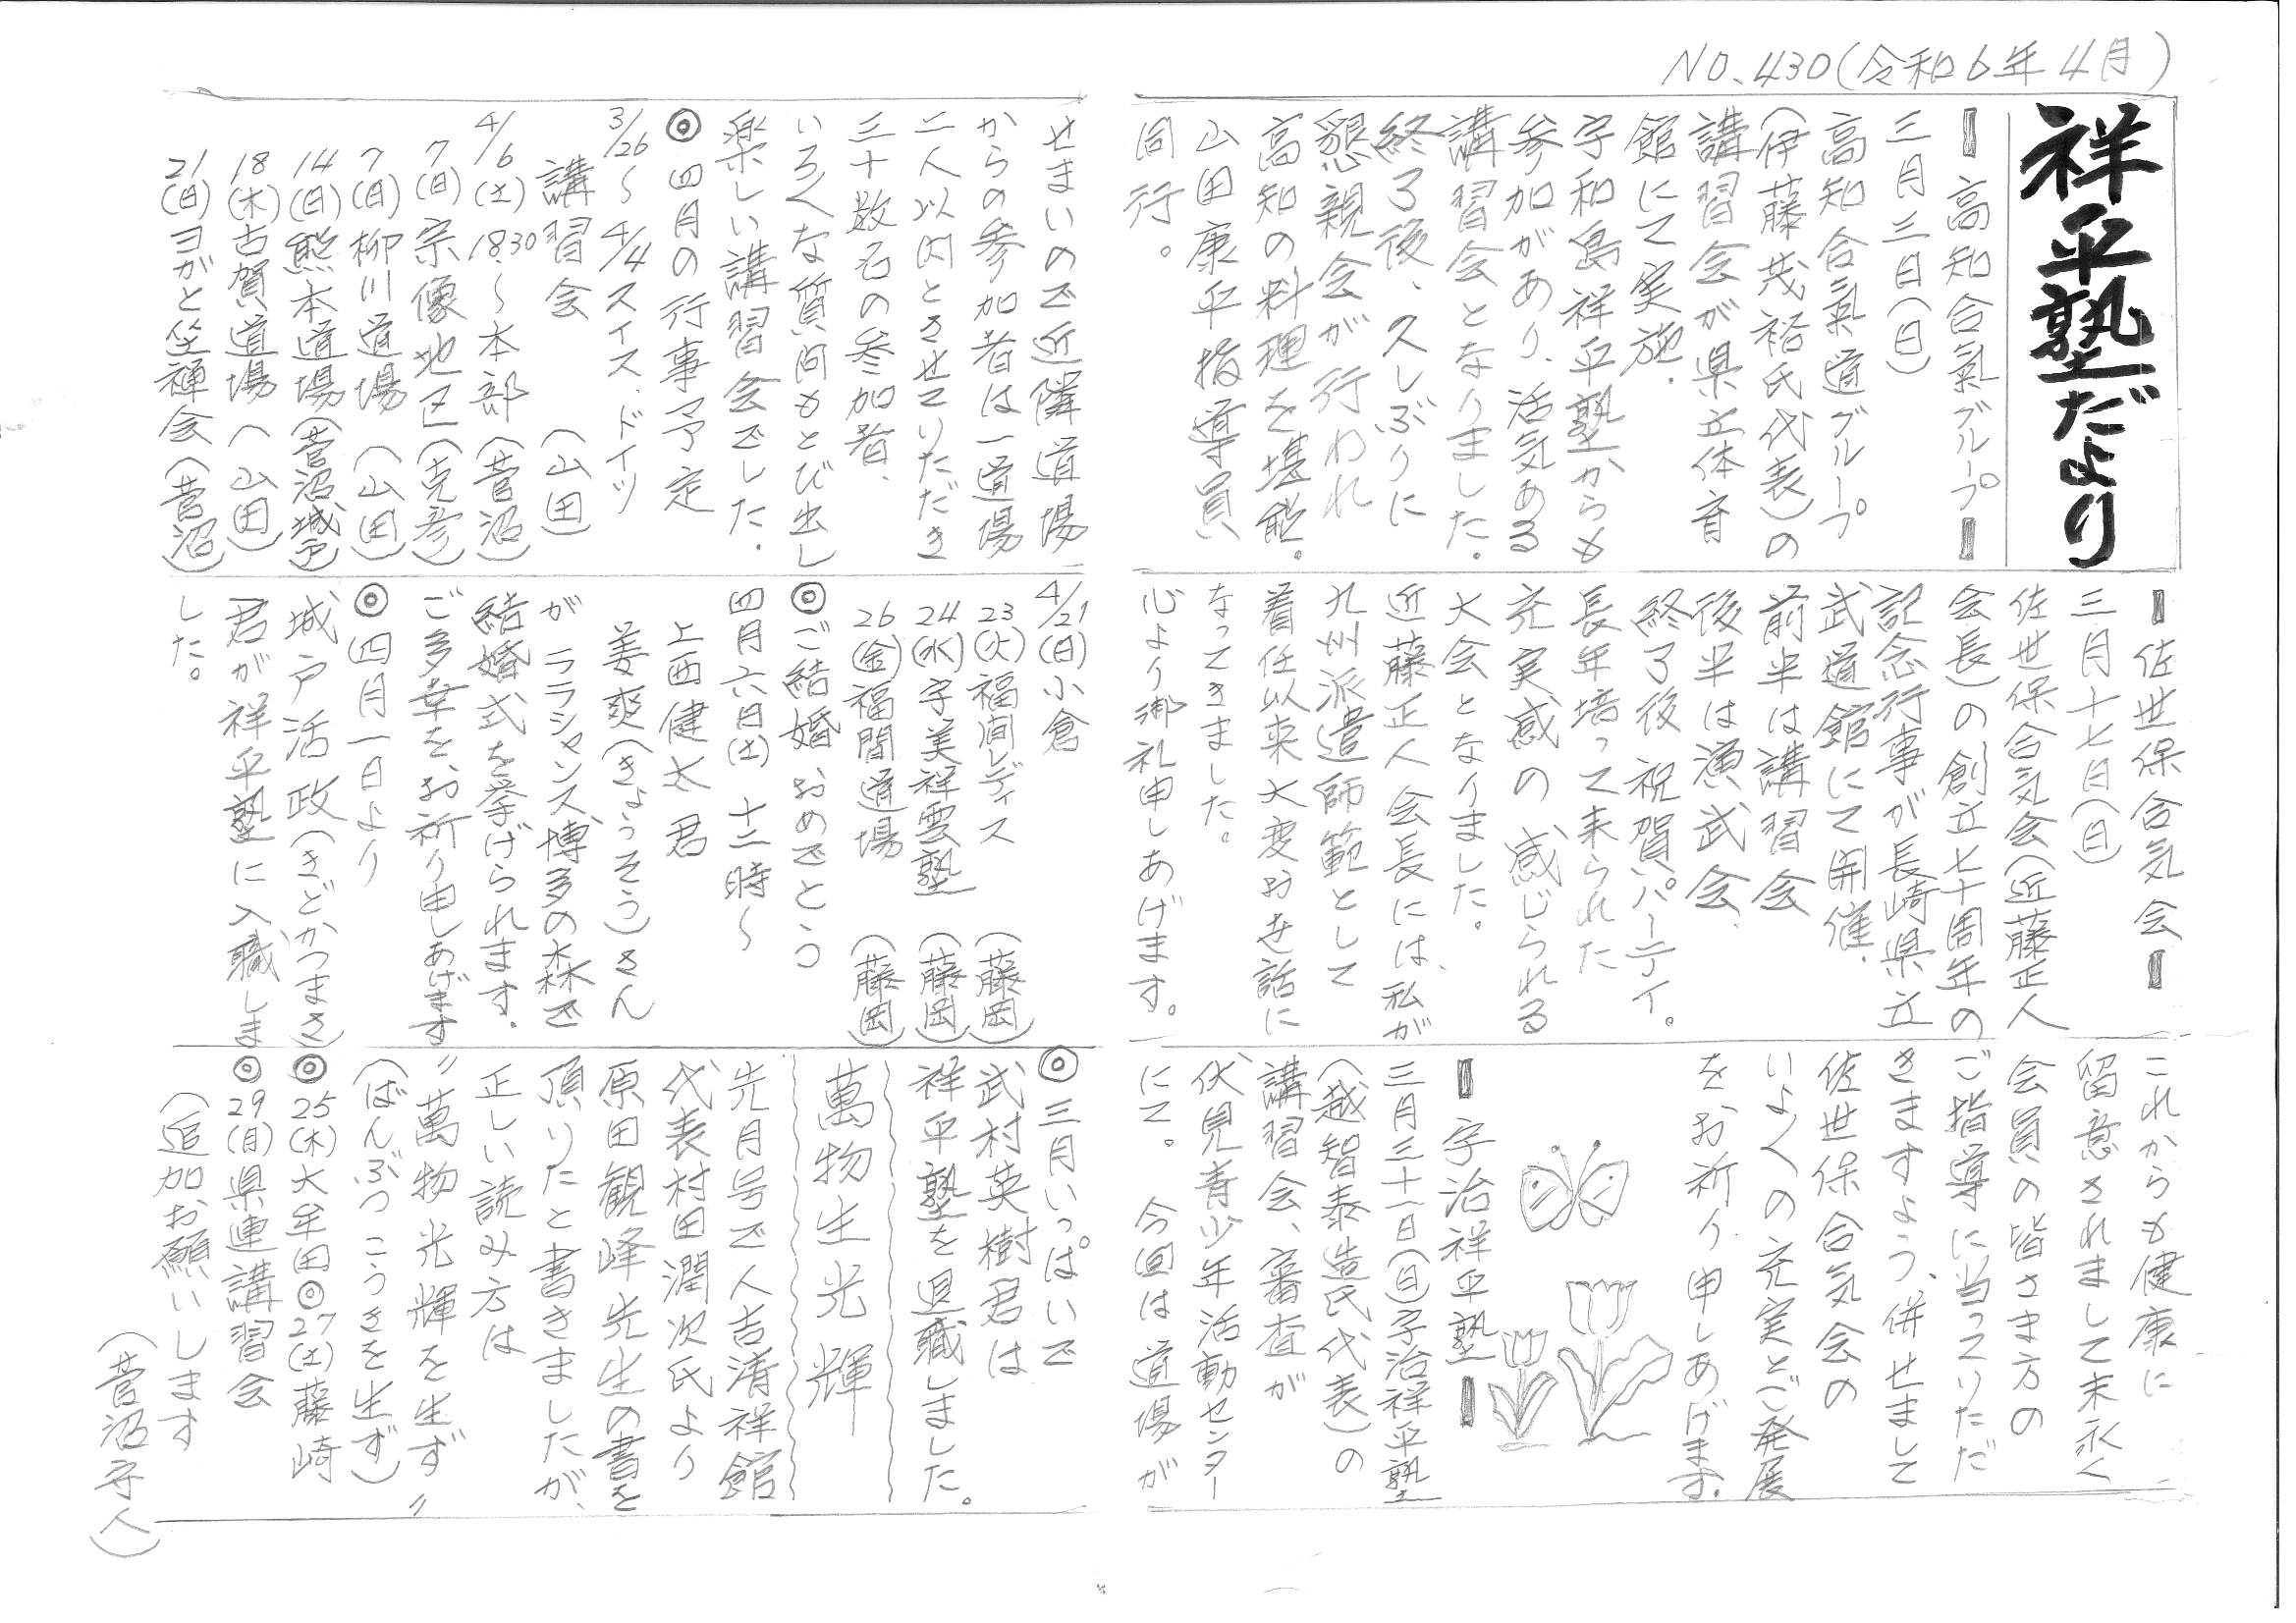 NO.430(令和6年4月)
祥平塾だより
高知合氣グループ
三月三日(日)
高知合氣道グループ
(伊藤茂裕氏代表)の
講習会が県立体育
館にて実施.
宇和島祥平塾からも
参加があり、活気ある
講習会となりました。
終了後、久しぶりに
懇親会が行われ
高知の料理を堪能。
山田康平指導員
同行。
佐世保合気会
三月十七日(日)
佐世保合気会(近藤正人
会長)の創立七十周年の
記念行事が長崎県立
武道館にて開催.
前半は講習会
後半は演武会.
終了後 祝賀パーティ。
長年培って来られた
充実感の 感じられる
大会となりました。
近藤正人会長には、私が
九州派遣師範として
着任以来大変お世話に
なってきました。
心より御礼申しあげます。
これからも健康に
留意されまして末永く
会員の皆さま方の
ご指導に当ってりただ
きますよう、併せまして
佐世保合気会の
いよ〱の充実とご発展
をお祈り申しあげます.
宇治祥平塾
三月三十一日(日)宇治祥平塾
(越智泰造氏代表)の
講習会、審査が
伏見青少年活動センター
にて。 今回は道場が
せまいので近隣道場
からの参加者は一道場
二人以内とさせてりただき
三十数名の参加者、
いろ〱な質問もとび出し
楽しい講習会でした.
◎ 四月の行事予定
3/26〜4/4スイス、ドイツ
講習会 (山田)
4/6(土)18.30〜本部(菅沼)
7(日)宗像地区(克彦)
7(日)柳川道場 (山田)
14(日)熊本道場(菅沼城戸)
18(木)古賀道場 (山田)
21(日)ヨガと笠禅会(菅沼)
4/21(日)小倉
23(火)福間レディス (藤岡)
24(水)宇美祥雲塾 (藤岡)
26(金)福間道場 (藤岡)
◎ご結婚おめでとう
四月六日(土)十二時〜
上西健太君
姜爽(きょうそう)さん
が ララシャンス博多の森で
結婚式を挙げられます.
ご多幸をお祈り申しあげます
◎四月一日より
城戸活政(きどかつまさ)
君が祥平塾に入職しま
した。
◎三月いっぱいで
武村英樹君は
祥平塾を退職しました。
萬物生光輝
先月号で人吉清祥館
代表村田潤次氏より
原田観峰先生の書を
頂りたと書きましたが、
正しい読み方は
〃萬物光輝を生ず〃
(ばんぶつこうきを生ず)
◎25(木)大牟田◎27(土)藤崎
◎29(日)県連講習会
(追加お願いします
(菅沼守人)